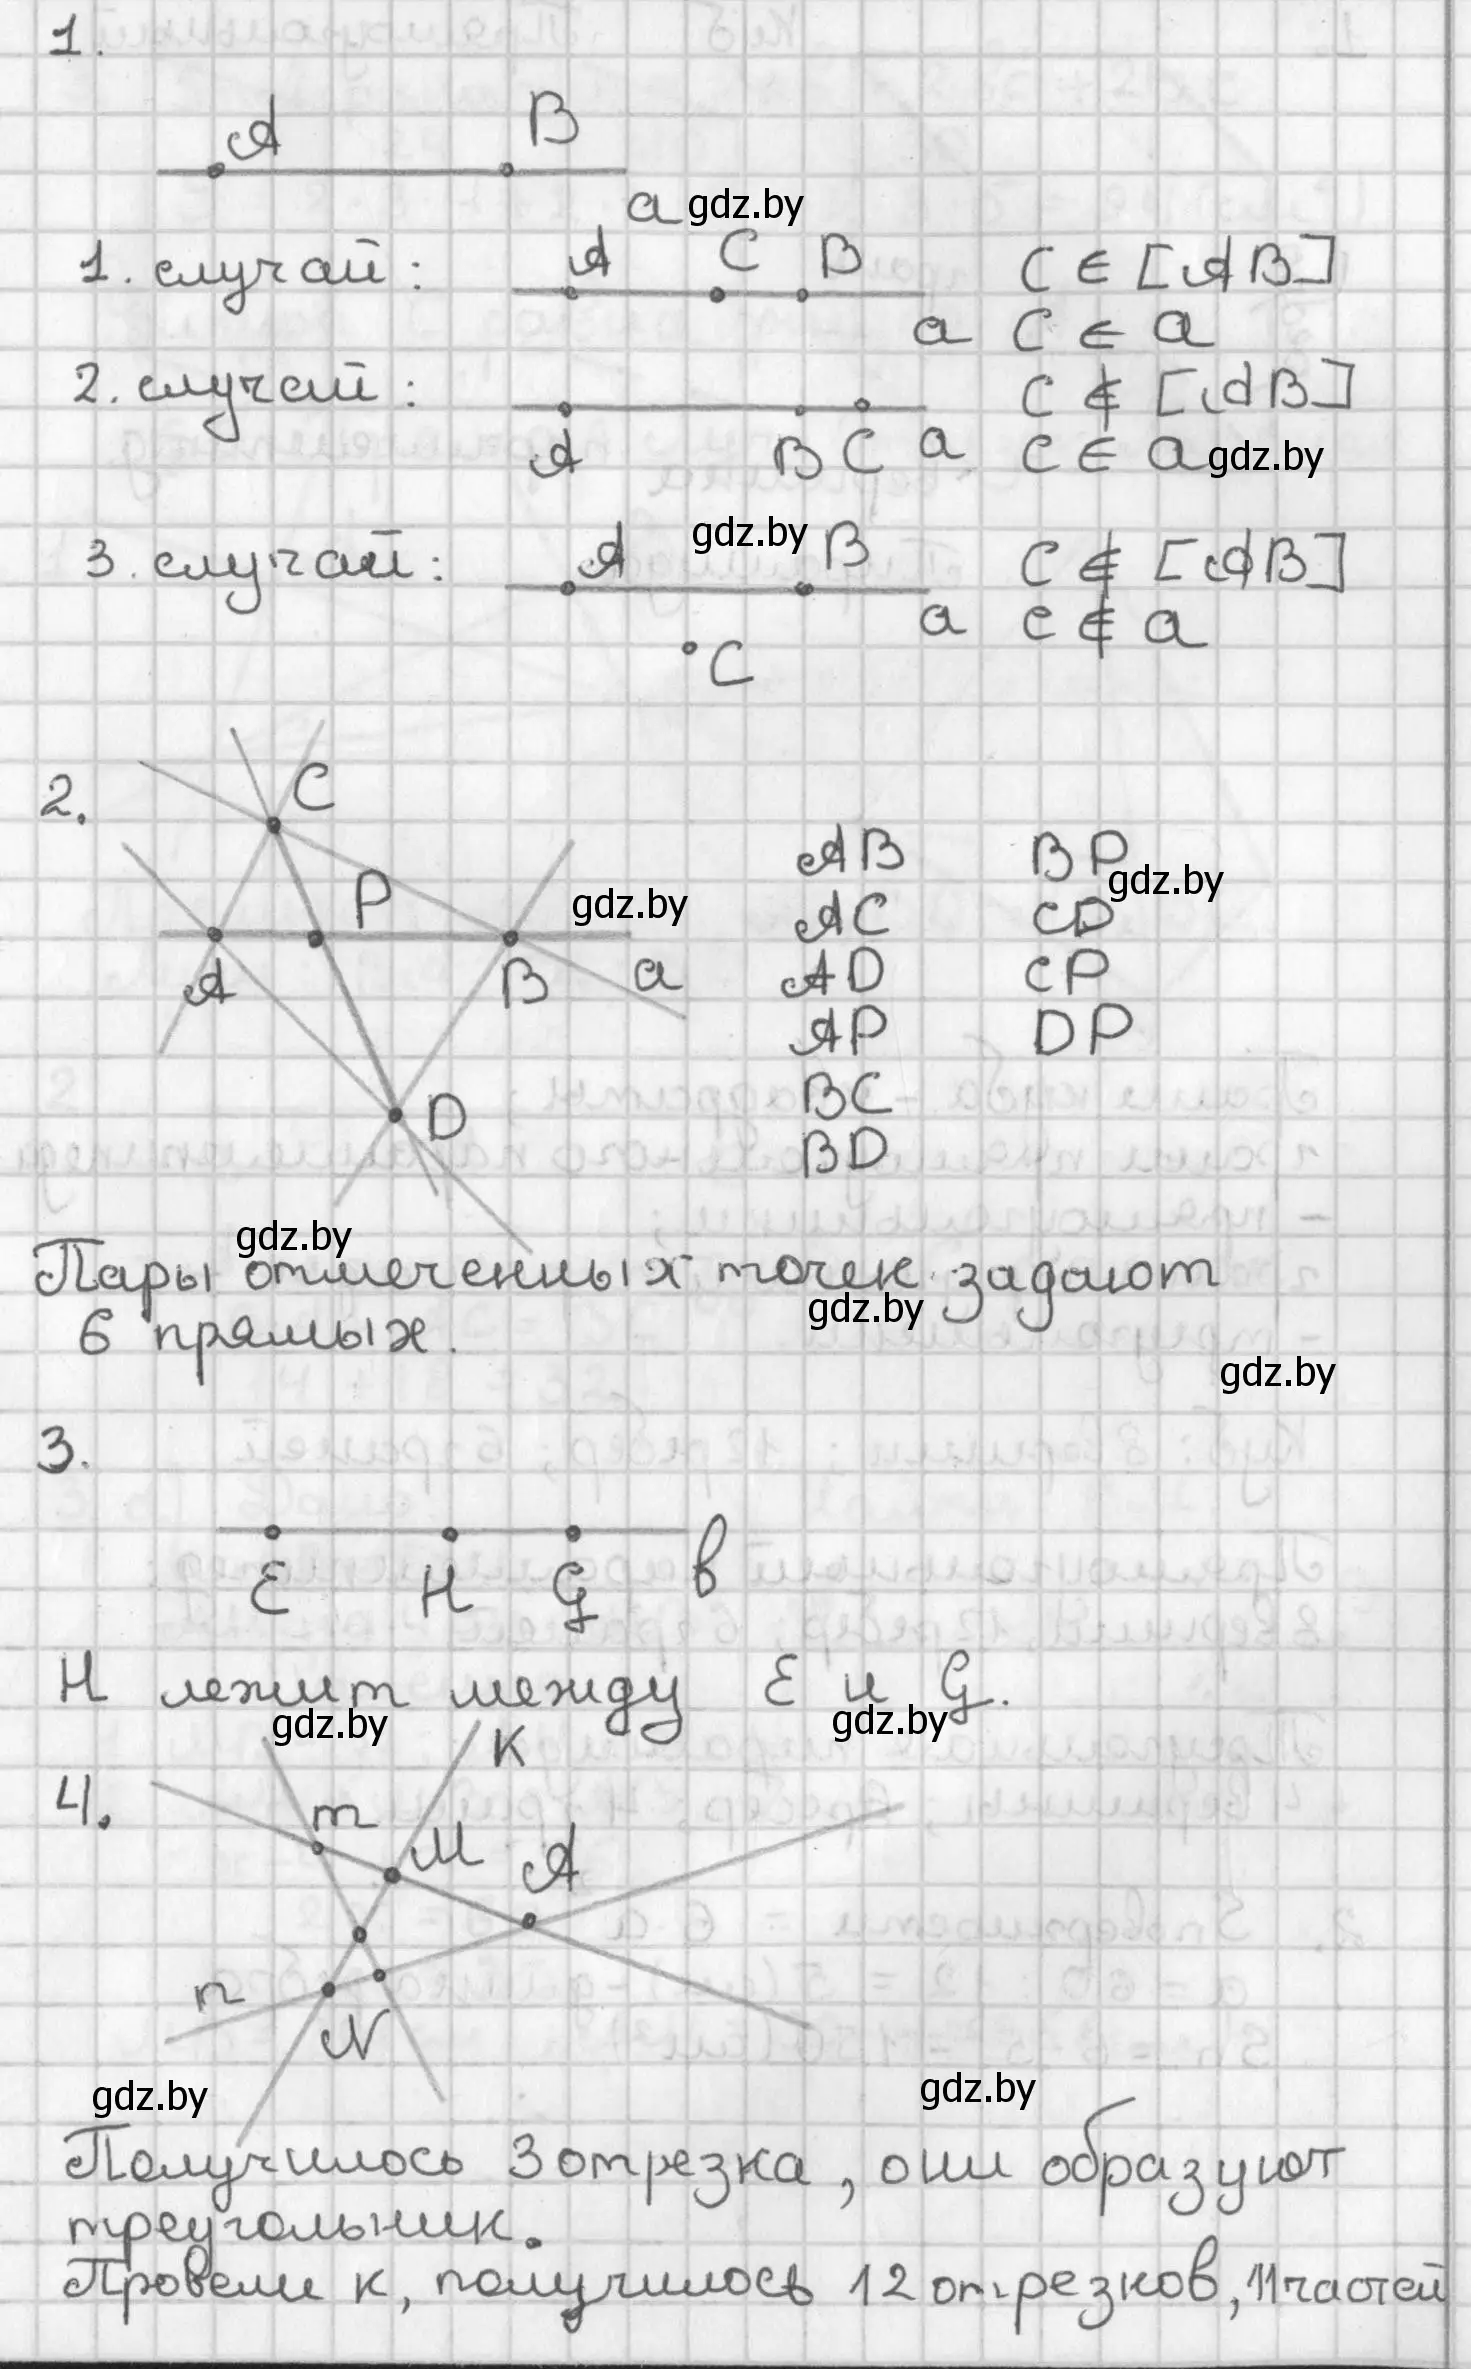 1.
A B
a gdz.by
1. случай: A C B a C ∈ [AB]
C ∈ a
2. случай: A B C a C ∉ [AB]
C ∈ a gdz.by
gdz.by
3. случай: A B a C ∉ [AB]
C ∉ a
C
2.
C
P
A B a
D
gdz.by
AB BP
gdz.by
AC CD
AD CP
AP DP
BC
BD
gdz.by
Пары отмеченных точек задают
gdz.by
6 прямых.
gdz.by
3.
E H G в
H лежит между E и G.
gdz.by gdz.by
4.
K
m M A
n
N
gdz.by gdz.by
Получилось 3 отрезка, они образуют
треугольник.
Провели к, получилось 12 отрезков, 11 частей